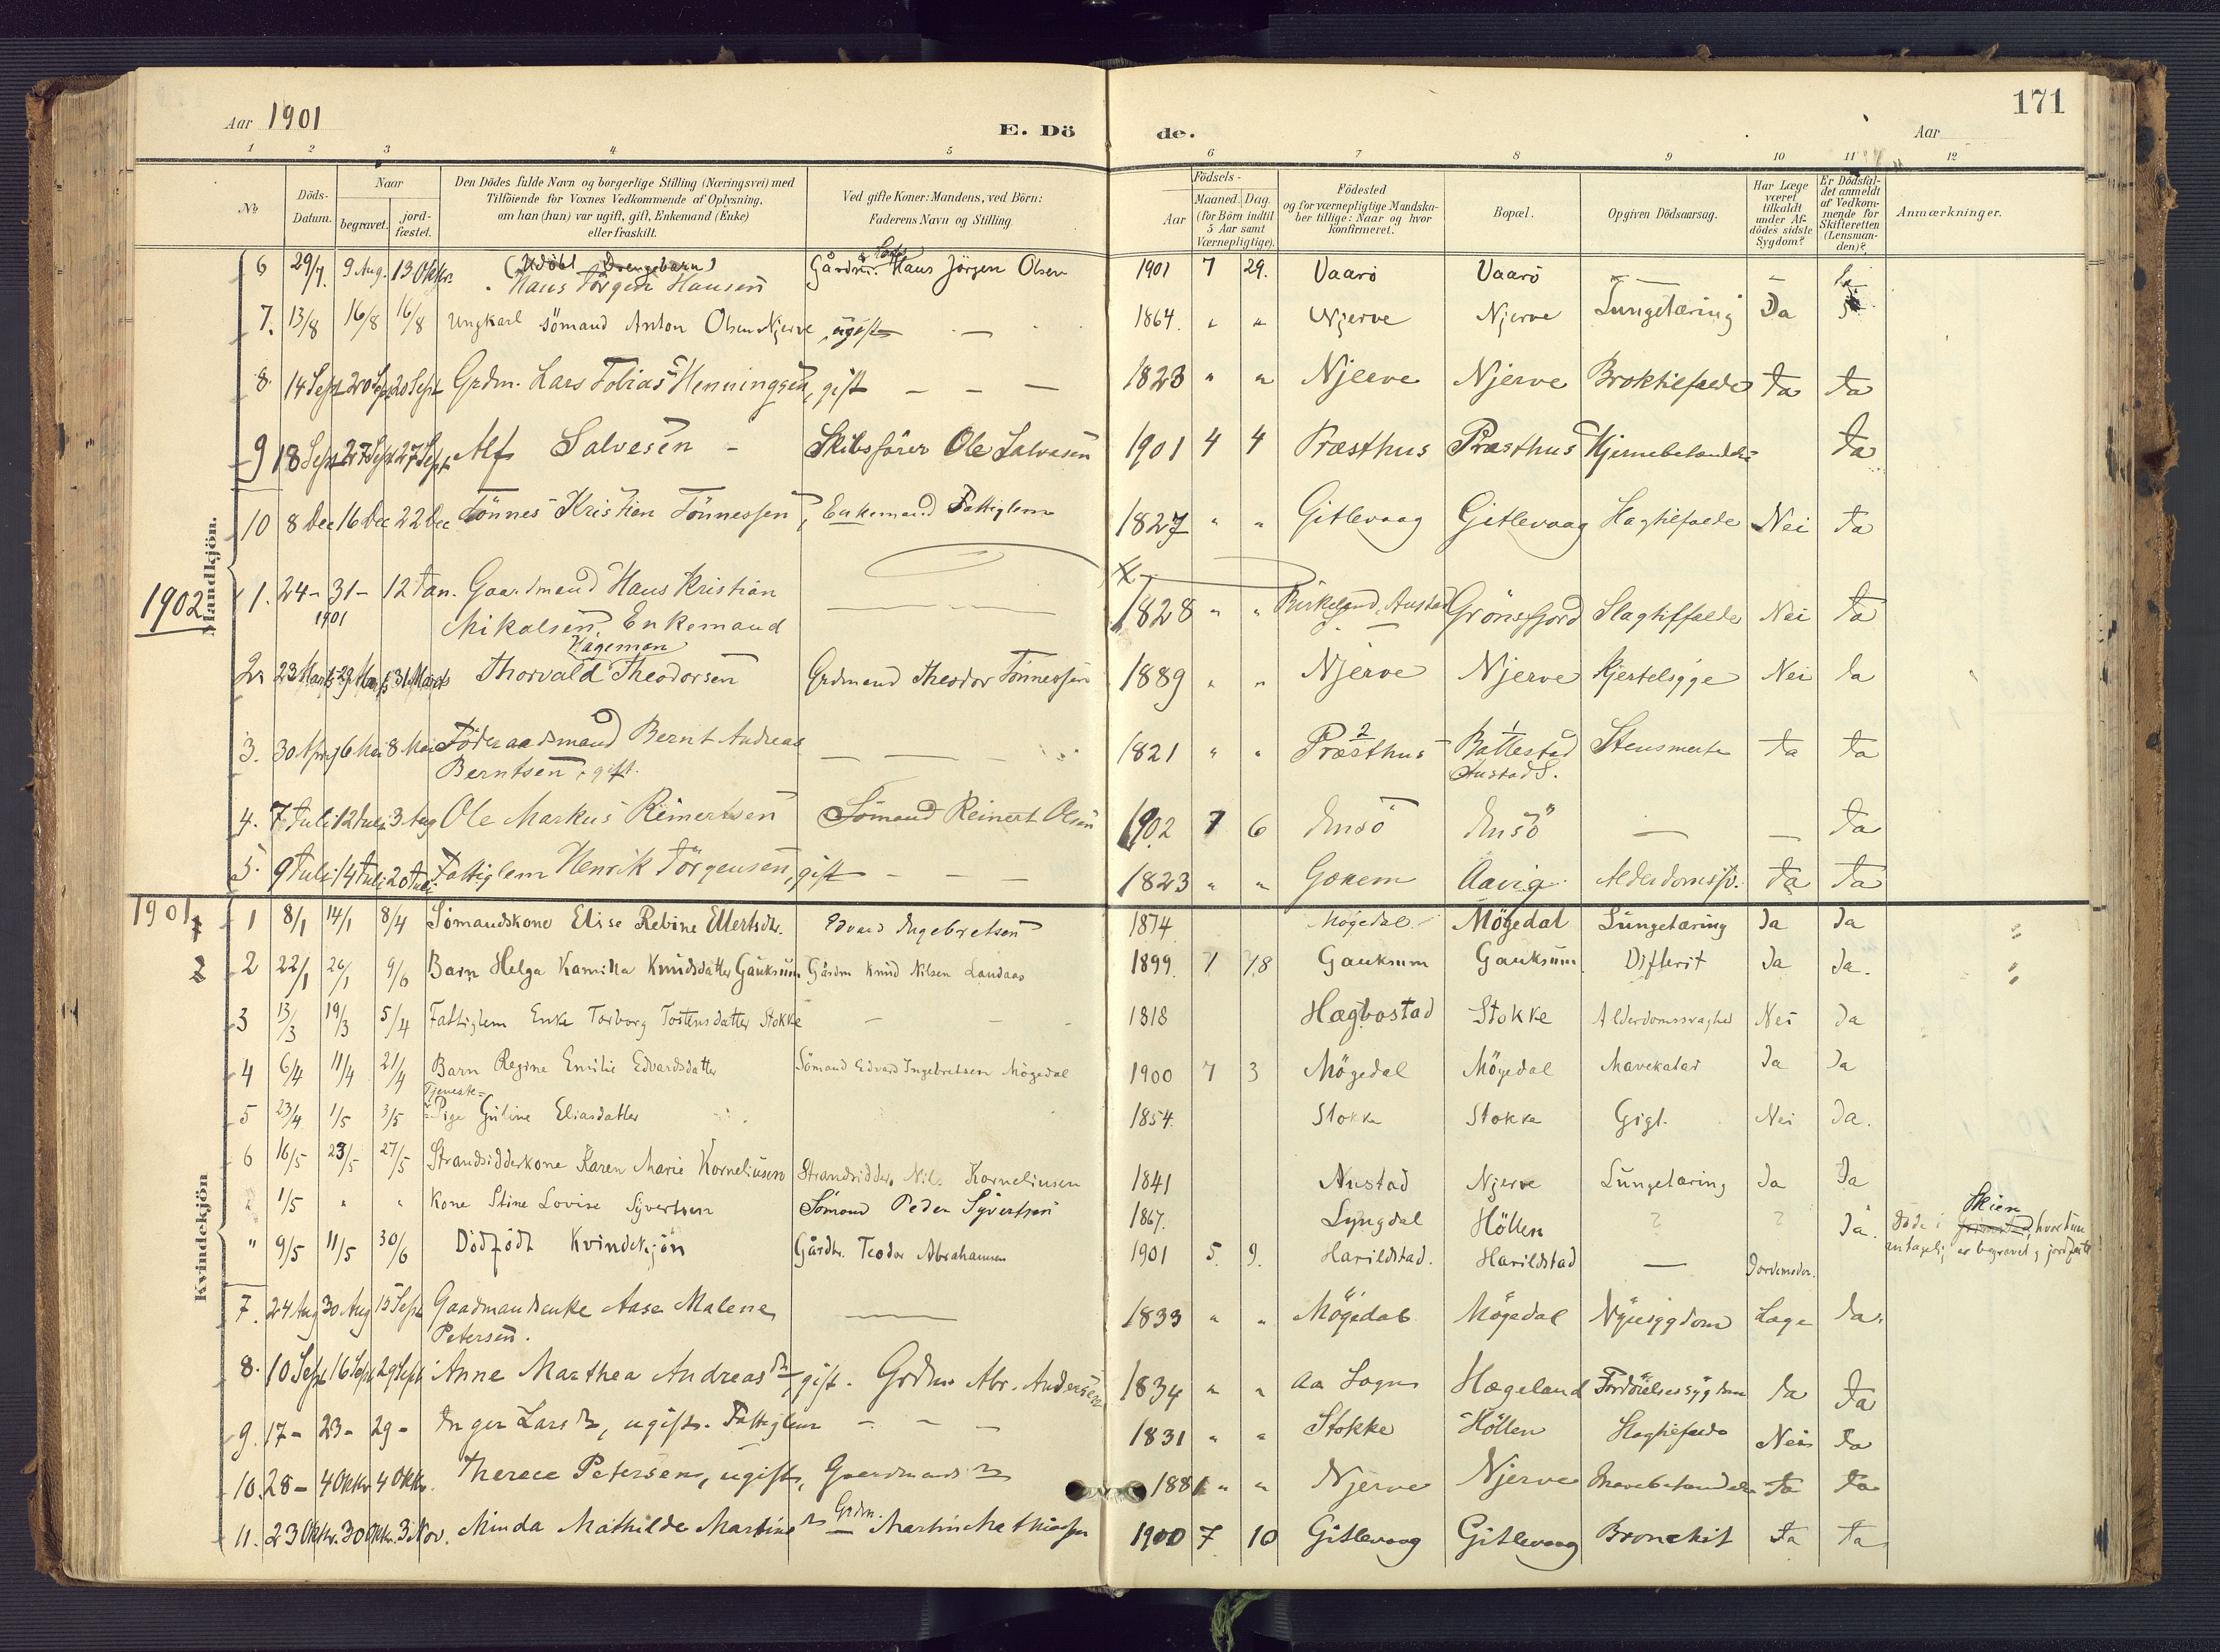 171
Aar 1901
E. Dö de.
Aar
1 2 3 4 5 6 7 8 9 10 11 12
No.
Döds-Datum.
Naar
begravet.
jord-fæstet.
Den Dödes fulde Navn og borgerlige Stilling (Næringsvei) med
Tilföiende for Voxnes Vedkommende af Oplysning.
om han (hun) var ugift, gift, Enkemand (Enke)
eller fraskilt.
Ved gifte Koner: Mandens, ved Börn:
Faderens Navn og Stilling.
Födsels-
Aar
Maaned. Dag.
(for Börn indtil
5 Aar samt
Værnepligtige).
Födested
og for værnepligtige Mandska-
ber tillige: Naar og hvor
konfirmeret.
Bopæl.
Opgiven Dödsaarsag.
Har Læge
været
tilkaldt
under Af-
dödes sidste
Sygdom?
Er Dödsfal-
det anmeldt
af Vedkom-
mende for
Skifteretten
(Lensman-
den)?
Anmærkninger.
Mandkjön.
6 29/7. 9 Aug. 13 Oktbr. (Udöbt Drengebarn) Hans Jörgen Hansen Gårdbr. Hans Jörgen Olsen 1901 7 29. Vaarö Vaarö — —
7. 13/8 16/8 16/8 Ungkarl sömand Anton Olsen Njerve, ugift — 1864. " " Njerve Njerve Lungetæring Ja
8. 14 Sept 20 Sept 20 Sept Grdm. Lars Tobias Henningsen, gift — — — 1823 " " Njerve Njerve Broktilfælde Ja Ja
9 18 Sept 27 Sept 27 Sept Alf Salvesen - Skibsförer Ole Salvesen 1901 4 4 Præsthus Præsthus Ja
10 8 Dec 16 Dec 22 Dec Tönnes Kristian Tönnessen, Enkemand Fattiglem 1827 " " Gitlevaag Gitlevaag Slagtilfælde Nei Ja
1902
1. 24- 31- 12 Jan. Gaardmand Hans Kristian 1828 " " Birkeland, Austad Grönsfjord Slagtilfælde Nei Ja
1901 Mikalsen, Enkemand
Hageman
2. 23 Marts 29 Marts 31 Marts Thorvald Theodorsen Grdmand Theodor Tönnessen 1889 " " Njerve Njerve Kjertelsyge Nei Ja
3. 30 April 6 Mai 8 Mai Föderaadsmand Bernt Andreas — — - 1821 " " Præsthus Battestad Ja Ja
Berntsen, gift. Austad S.
4. 7 Juli 12 Juli 3 Aug Ole Markus Reinertsen Sömand Reinert Olsen 1902 7 6 — — Ja
5. 9 Juli 14 Juli 20 Juli Fattiglem Henrik Jörgensen, gift — — — 1823 " " Aavig Alderdomssv. Ja Ja
1901
Kvindekjön
1 8/1 14/1 8/4 Sömandskone Elise Rebine Ellertsdtr. Edvard Ingebretsen 1874 Mögedal Mögedal Lungetæring Ja Ja
2 22/1 26/1 9/6 Barn Helga Kamilla Knudsdatter Gauksum Gårdm Knud Nilsen Landaas 1899. 7 Gauksum Gauksum. Difterit Ja Ja.
3 13/3 19/3 5/4 Fattiglem Enke Torborg Tostensdatter Stokke — - 1818 Hægbostad Stokke Alderdomssvaghed Nei Ja
4 6/4 11/4 21/4 Barn Regine Emilie Edvardsdatter Sömand Edvard Ingebretsen Mögedal 1900 7 3 Mögedal Mögedal Mavekatar Ja Ja
Tjeneste-
5 23/4 1/5 3/5 Pige Guline Eliasdatter 1854. Stokke Stokke Gigt. Nei Ja.
6 16/5 23/5 27/5 Strandsidderkone Karen Marie Korneliusen Strandsidder Nils Korneliusen 1841 Austad Njerve Lungetæring Ja Ja
1/5 " " Kone Stine Lovise Syvertsen Sömand Peder Syvertsen 1867. Lyngdal Höllen ? ? Ja. Döde i Skien, hvor hun
antagelig er begravet & jordfæstet
" 9/5 11/5 30/6 Dödfödt Kvindekjön Gårdbr. Teodor Abrahamsen 1901 5. 9. Harildstad. Harildstad — Jordemoder.
7. 24 Aug 30 Aug 15 Sept Gaadmandsenke Aase Malene — 1833 " " Mögedal Mögedal Nyresygdom Læge Ja.
Petersen.
8. 10 Sept 16 Sept 29 Sept Anne Marthea Andreasdtr, gift. Grdbr. Abr. Andersen 1834 " " Aa Sogn Hægeland Fordöielsessygdom Ja Ja
9. 17- 23- 29- Inger Larsdtr, ugift. Fattiglem - - — 1831 " " Stokke Höllen Slagtilfælde Nei Ja
10. 28- 4 Oktbr 4 Oktbr. Therese Petersen, ugift, Gaardmands 1881 " " Njerve Njerve Ja Ja
11. 23 Oktbr. 30 Oktbr. 3 Nov. Minda Mathilde Martine Grdm. Martin Mathiassen 1900 7 10 Gitlevaag Gitlevaag Bronchit Ja Ja